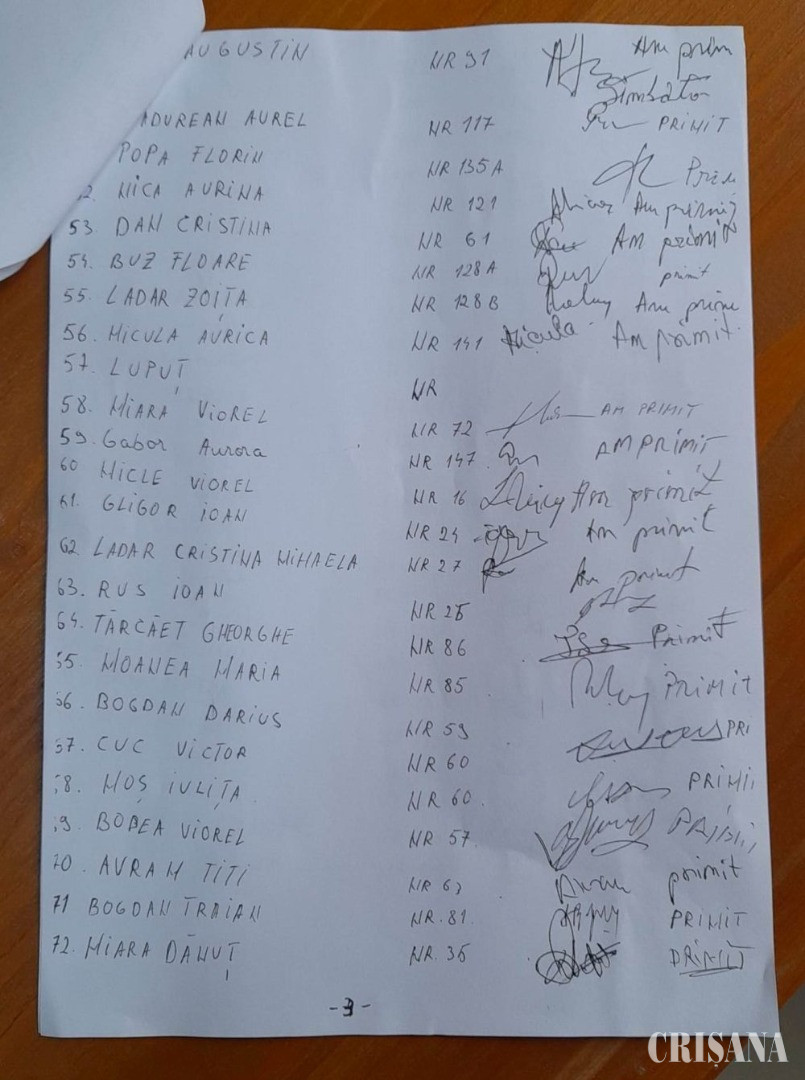 AUGUSTIN NR 91 Am prim
Sîmbăta
ADUREAN AUREL NR 117 PRIMIT
POPA FLORIN NR 135A Prim
2. MICA AURINA NR 121 Am primit
53. DAN CRISTINA NR 61 AM primit
54. BUZ FLOARE NR 128A primit
55. LADAR ZOIȚA NR 128B Am prim
56. MICULA AURICA NR 141 Micula Am primit.
57. LUPUȚ NR
58. MIARA VIOREL NR 72 AM PRIMIT
59. Gabor Aurora NR 147. AM PRIMIT
60 MICLE VIOREL NR 16 Am primit
61. GLIGOR IOAN NR 24 Am primit
62. LADAR CRISTINA MIHAELA NR 27 Am primit
63. RUS IOAN NR 25
64. TĂRCĂET GHEORGHE NR 86 Primit
65. MOANEA MARIA NR 85 PRIMIT
66. BOGDAN DARIUS NR 59 PRI
67. CUC VICTOR NR 60 PRIMI
68. MOȘ IULIȚA NR 60.
69. BODEA VIOREL NR 57.
70. AVRAM TITI NR 63 Avram primit
71 BOGDAN TRAIAN NR.81. PRIMIT
72. MIARA DĂNUȚ NR. 35 PRIMIT
-3-
CRIȘANA